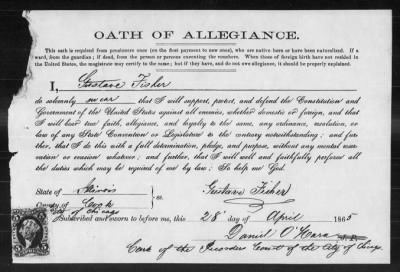 OATH OF ALLEGIANCE.
This oath is required from pensioners once (on the first payment to new ones), who are native here or have been naturalized. If a
ward, from the guardian; if dead, from the person or persons executing the vouchers. When those of foreign birth have not resided in
the United States, the magistrate may certify to the same; but if they have, and do not owe allegiance, it should be properly explained.
I, Gustave Fisher
do solemnly swear that I will support, protect, and defend the Constitution and
Government of the United States against all enemies, whether domestic or foreign, and that
I will bear true faith, allegiance, and loyalty to the same, any ordinance, resolution, or
law of any State Convention or Legislature to the contrary notwithstanding; and fur-
ther, that I do this with a full determination, pledge, and purpose, without any mental reser-
vation or evasion whatever; and further, that I will well and faithfully perform all
the duties which may be required of me by law: So help me God.
State of Illinois
ss:
Gustave Fisher
County of Cook
City of Chicago
Subscribed and sworn to before me, this 28 day of April 1865
Daniel O'Hara
Clerk of the Recorders Court of the City of Chicago